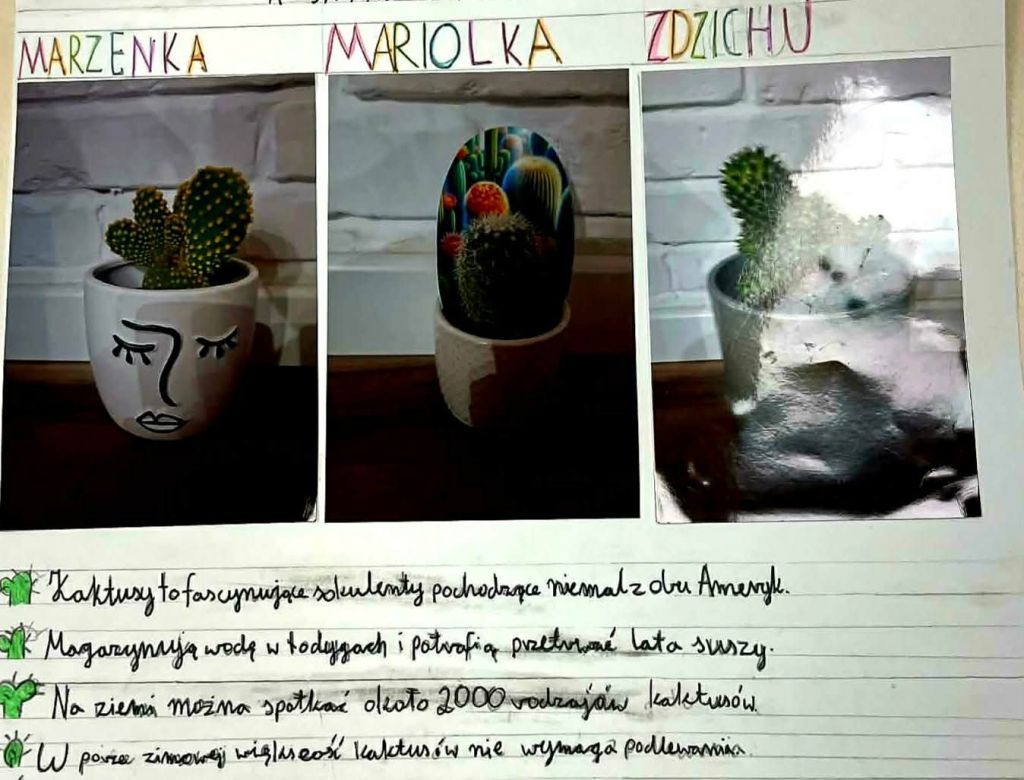 MARZENKA MARIOLKA ZDZICHU
Kaktusy to fascynujące sukulenty pochodzące niemal z obu Ameryk.
Magazynują wodę w łodygach i potrafią przetrwać lata suszy.
Na ziemi można spotkać około 2000 rodzajów kaktusów.
W porze zimowej większość kaktusów nie wymaga podlewania.